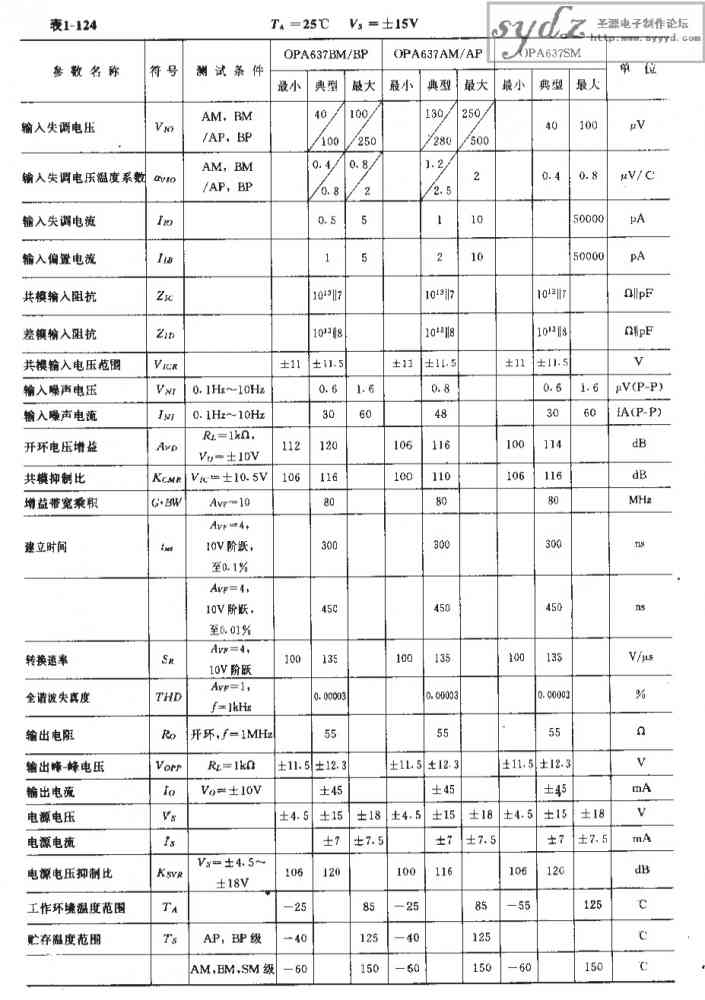 表1-124 T_A=25℃ V_S=±15V
sydz 圣源电子制作论坛
http:www.syyyd.com
参数名称 符号 测试条件 OPA637BM/BP OPA637AM/AP OPA637SM 单位
最小 典型 最大 最小 典型 最大 最小 典型 最大
输入失调电压 V_IO AM, BM /AP, BP 40/100 100/250 130/280 250/500 40 100 μV
输入失调电压温度系数 α_VIO AM, BM /AP, BP 0.4/0.8 0.8/2 1.2/2.5 2 0.4 0.8 μV/C
输入失调电流 I_IO 0.5 5 1 10 50000 pA
输入偏置电流 I_IB 1 5 2 10 50000 pA
共模输入阻抗 Z_IC 10¹³||7 10¹³||7 10¹³||7 Ω||pF
差模输入阻抗 Z_ID 10¹³||8 10¹³||8 10¹³||8 Ω||pF
共模输入电压范围 V_ICR ±11 ±11.5 ±11 ±11.5 ±11 ±11.5 V
输入噪声电压 V_NI 0.1Hz~10Hz 0.6 1.6 0.8 0.6 1.6 μV(P-P)
输入噪声电流 I_NI 0.1Hz~10Hz 30 60 48 30 60 fA(P-P)
开环电压增益 A_VD R_L=1kΩ, V_O=±10V 112 120 106 116 100 114 dB
共模抑制比 K_CMR V_IC=±10.5V 106 116 100 110 106 116 dB
增益带宽乘积 G·BW A_VF=10 80 80 80 MHz
建立时间 t_set A_VF=4, 10V阶跃, 至0.1% 300 300 300 ns
A_VF=4, 10V阶跃, 至0.01% 450 450 450 ns
转换速率 S_R A_VF=4, 10V阶跃 100 135 100 135 100 135 V/μs
全谐波失真度 THD A_VF=1, f=1kHz 0.00003 0.00003 0.00003 %
输出电阻 R_O 开环,f=1MHz 55 55 55 Ω
输出峰-峰电压 V_OPP R_L=1kΩ ±11.5 ±12.3 ±11.5 ±12.3 ±11.5 ±12.3 V
输出电流 I_O V_O=±10V ±45 ±45 ±45 mA
电源电压 V_S ±4.5 ±15 ±18 ±4.5 ±15 ±18 ±4.5 ±15 ±18 V
电源电流 I_S ±7 ±7.5 ±7 ±7.5 ±7 ±7.5 mA
电源电压抑制比 K_SVR V_S=±4.5~±18V 106 120 100 116 106 120 dB
工作环境温度范围 T_A −25 85 −25 85 −55 125 ℃
贮存温度范围 T_S AP, BP级 −40 125 −40 125 ℃
AM,BM,SM级 −60 150 −60 150 −60 150 ℃